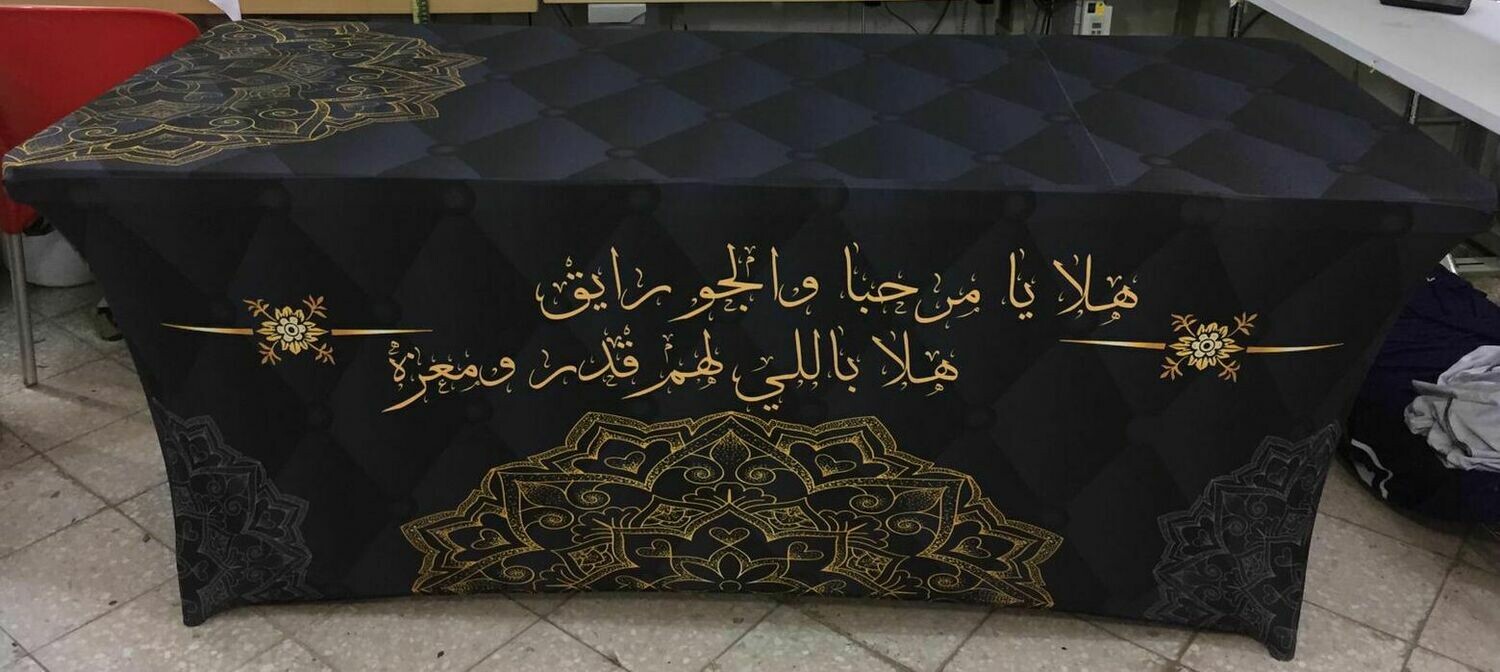 هلا يا مرحبا والجو رايق
هلا باللي لهم قدر ومعزة